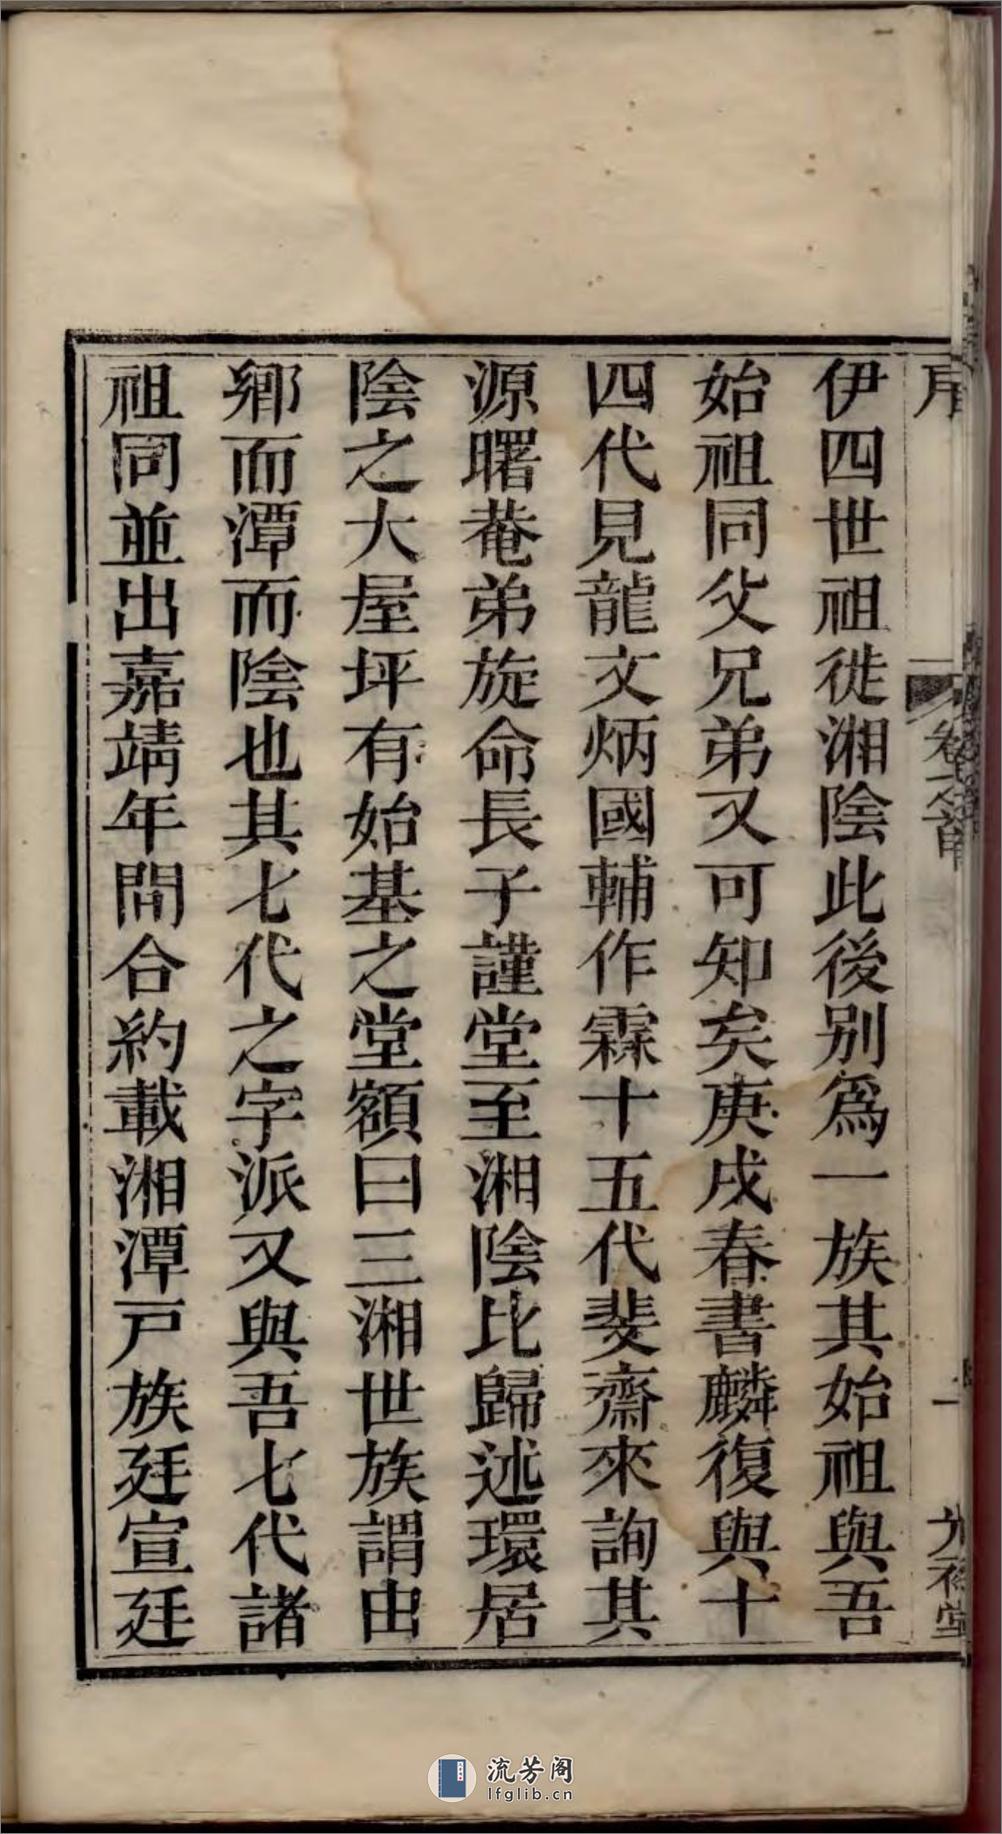 伊四世祖徙湘陰此後别爲一族其始祖與吾
始祖同父兄弟又可知矣庚戌春書麟復與十
四代見龍文炳國輔作霖十五代斐齋來詢其
源曙菴弟旋命長子謹堂至湘陰比歸述環居
陰之大屋坪有始基之堂額曰三湘世族謂由
鄉而潭而陰也其七代之字派又與吾七代諸
祖同並出嘉靖年間合約載湘潭戸族廷宣廷
流芳阁
lfglib.cn